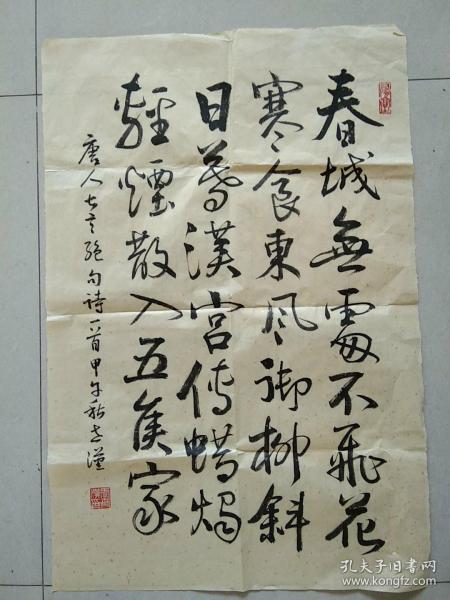 春城無處不飛花
寒食東風御柳斜
日暮漢宮傳蠟燭
輕煙散入五侯家
唐人七言绝句詩一首甲午秋志漢
孔夫子旧书网
www.kongfz.com